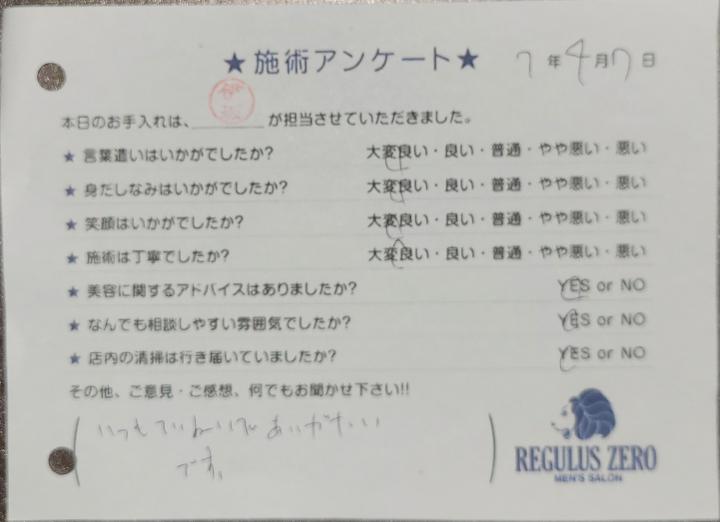 ★施術アンケート★ 7年4月7日
本日のお手入れは、 が担当させていただきました。
★ 言葉遣いはいかがでしたか? 大変良い・良い・普通・やや悪い・悪い
★ 身だしなみはいかがでしたか? 大変良い・良い・普通・やや悪い・悪い
★ 笑顔はいかがでしたか? 大変良い・良い・普通・やや悪い・悪い
★ 施術は丁寧でしたか? 大変良い・良い・普通・やや悪い・悪い
★ 美容に関するアドバイスはありましたか? YES or NO
★ なんでも相談しやすい雰囲気でしたか? YES or NO
★ 店内の清掃は行き届いていましたか? YES or NO
その他、ご意見・ご感想、何でもお聞かせ下さい!!
いつもていねいでありがたい
です。
REGULUS ZERO
MEN'S SALON